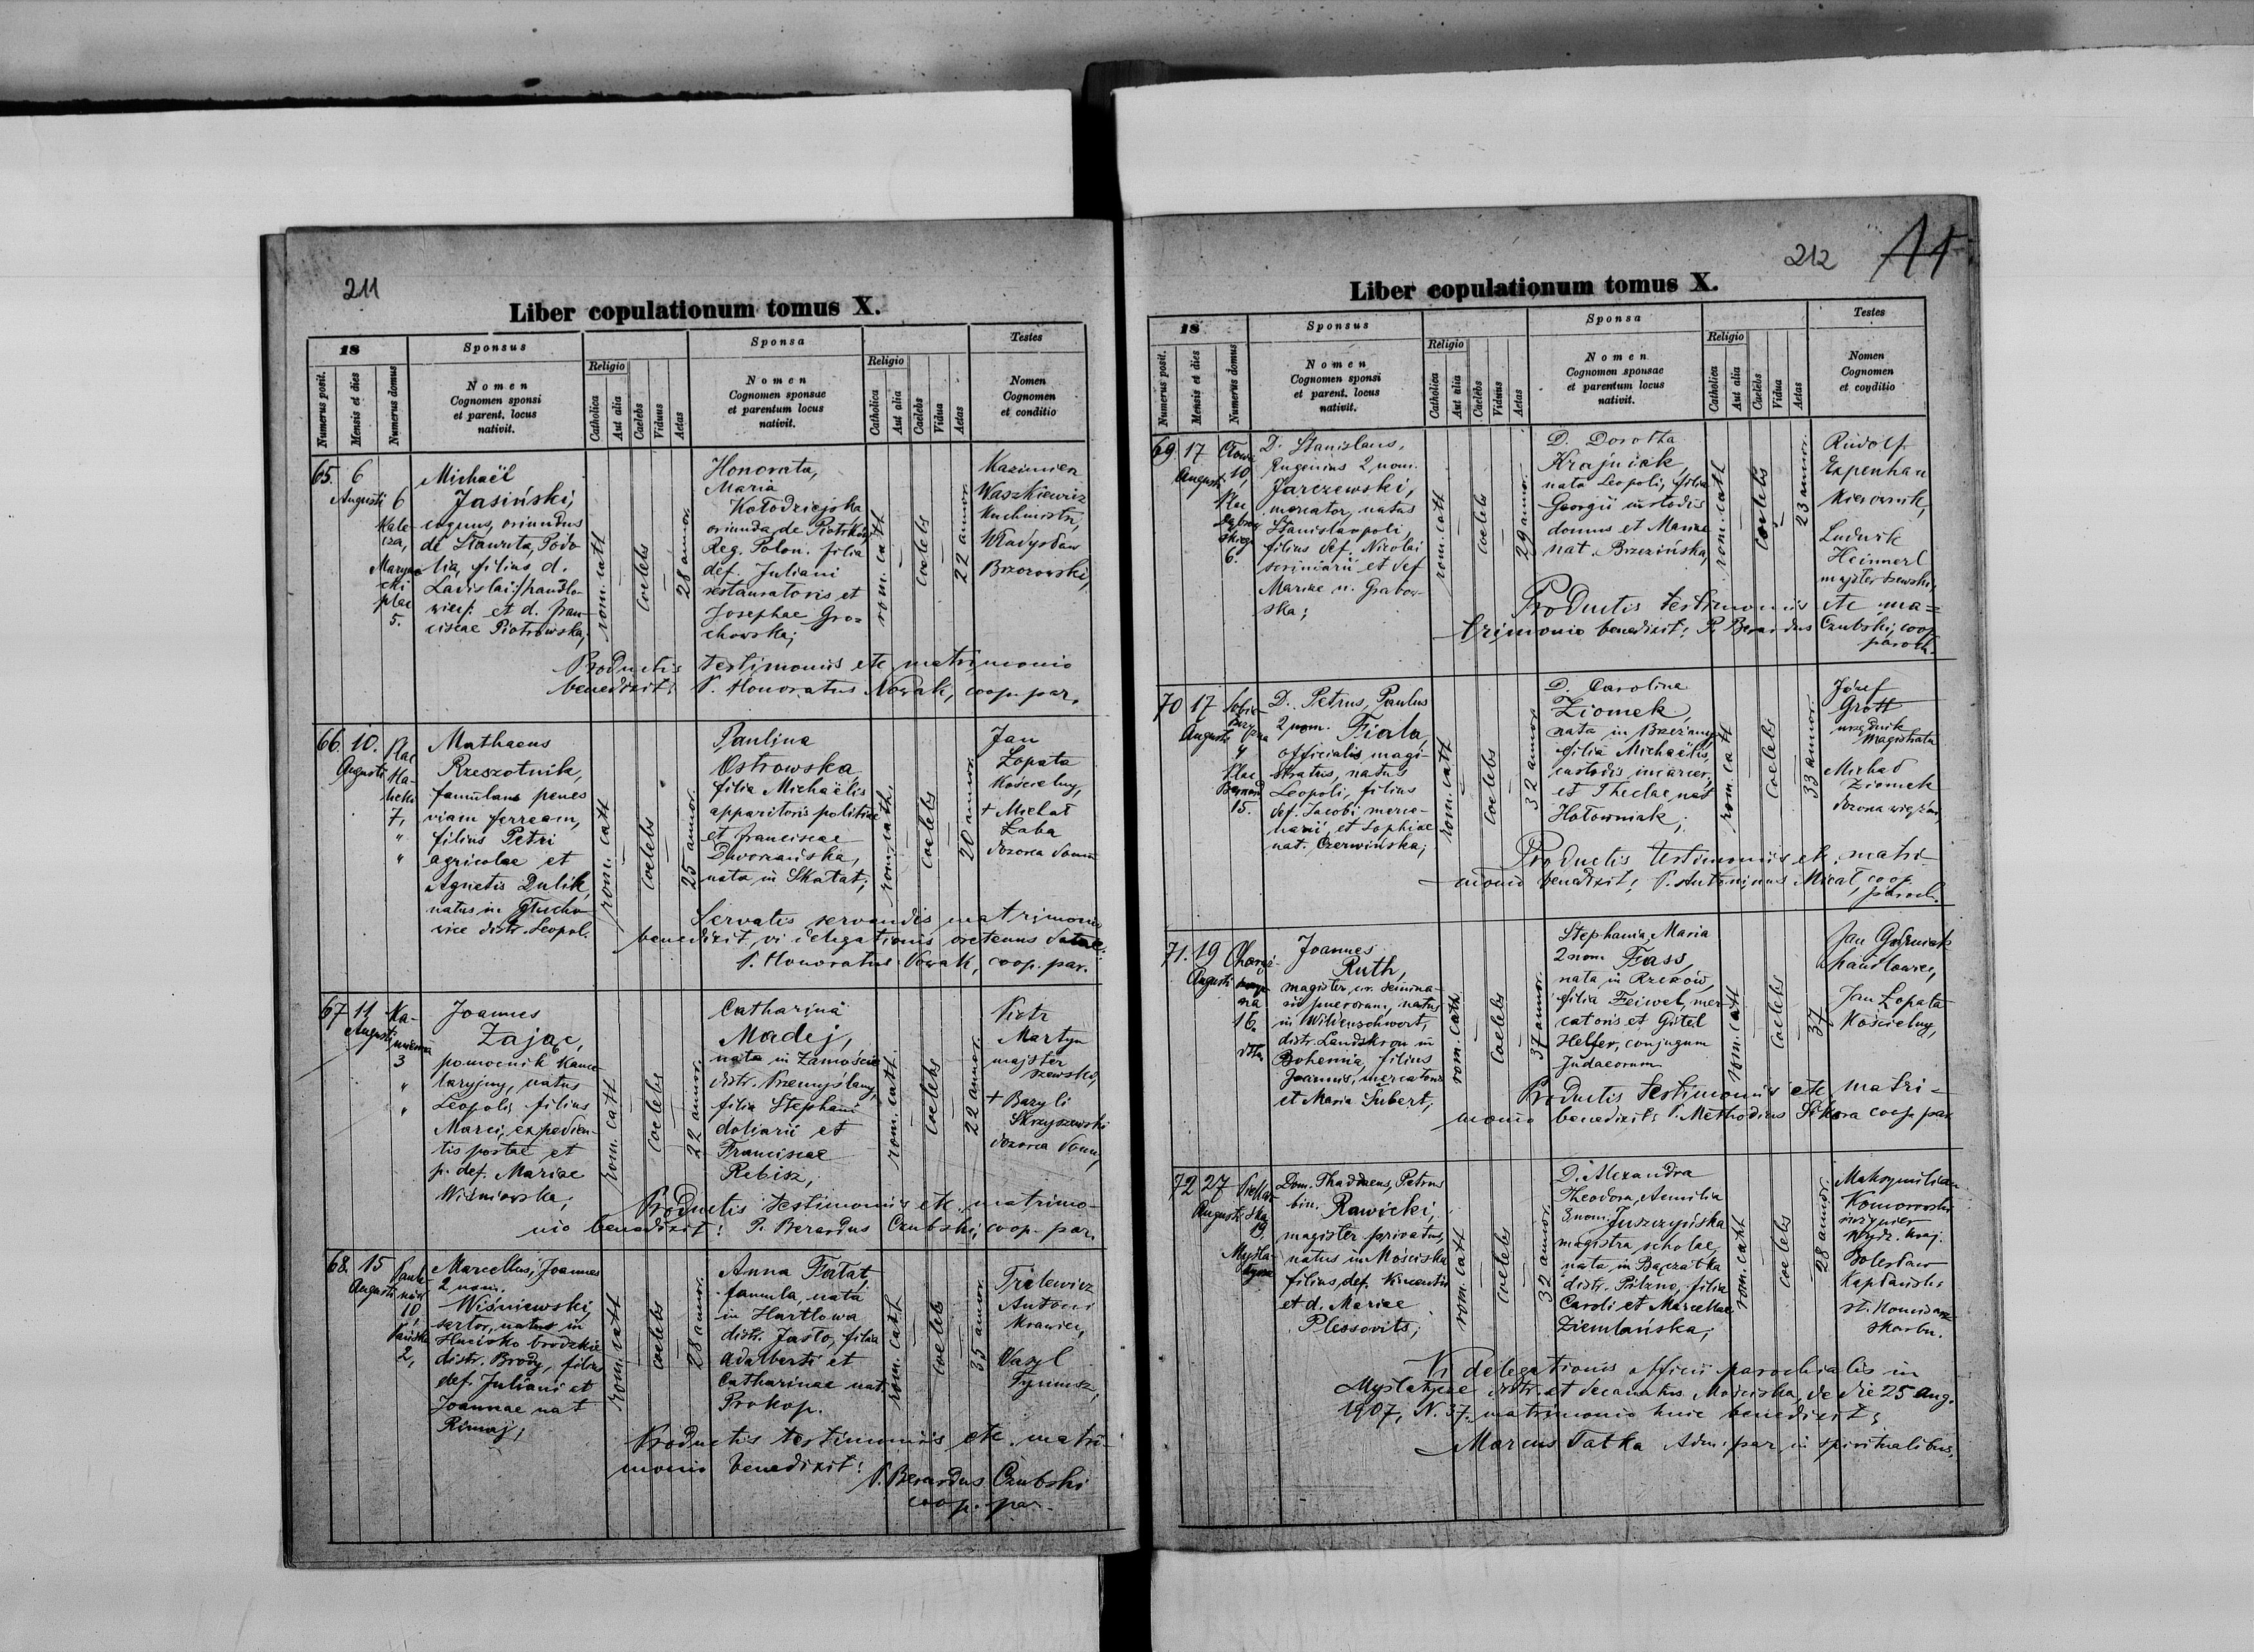 211
Liber copulationum tomus X.
18
Sponsus
Sponsa
Testes
Numerus posit.
Mensis et dies
Numerus domus
Nomen
Cognomen sponsi
et parent. locus
nativit.
Religio
Catholica
Aut alia
Caelebs
Viduus
Aetas
Nomen
Cognomen sponsae
et parentum locus
nativit.
Religio
Catholica
Aut alia
Caelebs
Vidua
Aetas
Nomen
Cognomen
et conditio
65.
6
Augusti
6
Kale-
cza,
plac
5.
Michaël
Jasiński,
coquus, oriundus
de Stawuta, Podo
lia, filius d.
Ladislai /: handlo-
wiec :/ et d. Fran-
ciscae Piotrowska;
rom. cath
coelebs
28 annor.
Honorata,
Maria
Kołodziejska
oriunda de Piotrków
Reg. Polon. filia
def. Juliani
restauratoris et
Josephae Gro-
chowska;
rom. cath
coelebs
22 annor.
Kazimierz
Waszkiewicz
Kuchmistrz,
Władysław
Brzozowski,
Productis testimoniis etc matrimonio
benedixit: P. Honoratus Nowak, coop. par.
66.
10.
Augusti
Plac
Ha-
licki
7,
"
"
Mathaeus
Rzeszotnik,
famulans penes
viam ferream,
filius Petri
agricolae et
Agnetis Dulik,
natus in Głucho
wice distr. Leopol.
rom. cath
coelebs
25 annor.
Paulina
Ostrowska
filia Michaëlis
apparitoris politiae
et Franciscae
Dworzańska,
nata in Skałat;
rom. cath.
coelebs
20 annor.
Jan
Łopata
Kościelny,
+ Michał
Łaba
dozorca domu
Servatis servandis matrimonio
benedixit, vi delegationis oretenus datae:
P. Honoratus Nowak, coop. par.
67
11
Augusti
Ka-
mienna
3
"
"
Joannes
Zając,
pomocnik kance-
laryjny, natus
Leopoli, filius
Marci, expedien-
tis postae et
p. def. Mariae
Wiśniowska;
rom. cath
coelebs
22 annor.
Catharina
Madej,
nata in Zamoście
distr. Przemyślany,
filia Stephani
doliarii et
Franciscae
Rebisz,
rom. cath.
coelebs
22 annor.
Piotr
Martyn
majster
szewski,
+ Bazyli
Skrzyszewski
dozorca domu,
Productis testimoniis etc matrimo-
nio benedixit: P. Berardus Czubski, coop. par.
68.
15
Augusti
10,
2,
Marcellus, Joannes
2 nom.
Wiśniewski,
sartor, natus in
Hucisko brodzkie
distr. Brody, filius
def. Juliani et
Joannae nat
Rimaj,
rom. cath
coelebs
28 annor.
Anna Fatat,
famula, nata
in Harklowa
distr. Jasło, filia
Adalberti et
Catharinae nat.
Prokop.
rom. cath
coelebs
35 annor.
Antoni
Krawiec,
Wasyl
Productis testimoniis etc. matri-
monio benedixit:
P. Berardus Czubski
coop. par.
212
Liber copulationum tomus X.
18
Sponsus
Sponsa
Testes
Numerus posit.
Mensis et dies
Numerus domus
Nomen
Cognomen sponsi
et parent. locus
nativit.
Religio
Catholica
Aut alia
Caelebs
Viduus
Aetas
Nomen
Cognomen sponsae
et parentum locus
nativit.
Religio
Catholica
Aut alia
Caelebs
Vidua
Aetas
Nomen
Cognomen
et conditio
69.
17
Augusti
10,
Plac
6.
D. Stanislaus,
Eugenius 2 nom.
Jarczewski,
mercator, natus
Stanislaopoli,
filius def. Nicolai
scriniarii et def
Mariae n. Grabow-
ska;
rom. cath
coelebs
29 annor.
D. Dorotha
Krajniak,
nata Leopoli, filia
Georgii custodis
domus et Mariae
nat. Brzezińska,
rom. cath
coelebs
23 annor.
Rudolf
Kierownik,
Ludwik
Heinnerl
majster szewski,
Productis testimoniis etc ma=
trimonio benedixit: P. Berardus Czubski, coop
paroch.
70
17
Augusti
4
Plac
Bernard
15.
D. Petrus, Paulus
2 nom. Fiala
officialis magi-
stratus, natus
Leopoli, filius
def. Jacobi merce-
narii, et Sophiae
nat. Czerwińska;
rom. cath
coelebs
32 annor
D. Carolina
Ziomek,
nata in Brzeżany
filia Michaëlis,
custodis incarcer.
et Theclae nat
Hołowniak;
rom. cath
coelebs
33 annor.
Józef
Grott
urzędnik
Magistratu
Michał
Ziomek
dozorca więzień,
Productis testimoniis etc. matri-
monio benedixit: P. Antoninus Micał, coop
paroch.
71.
19
Augusti
16.
Joannes
Ruth,
magister c.r. semina-
rii puerorum, natus
in Wildenschwert,
distr. Landskron in
Bohemia, filius
Joannis, mercatoris
et Maria Subert;
rom. cath.
coelebs
37 annor.
Stephania, Maria
2 nom. Fass,
nata in Rzeszów,
filia Feiwel mer
catoris et Gitel
Helfer, conjugum
Judaeorum
rom. cath
coelebs
37
Jan Goźniak
handlowiec,
Jan Łopata
Kościelny,
Productis testimoniis etc. matri-
monio benedixit: P. Methodius Sikora coop par
72
27
Augusti
19,
Dom. Thaddaeus, Petrus
bin. Rawicki,
magister privatus,
natus in Mościska
filius def. Vincentii
et d. Mariae
Plessovits;
rom. cath
coelebs
32 annor.
D. Alexandra
Theodora, Aemilia
3 nom. Juszczyńska
magistra scholae,
nata in Bączałka
distr. Pilzno, filia
Caroli et Marcellae
Ziemlańska;
rom. cath
coelebs
28 annor.
Maksymilian
Komorowski
inżynier
Wydz. kraj.
Bolesław
st. Komisarz
skarbu.
Vi delegationis officii parochialis in
Myślatycze distr. et decanatus Mościska, de die 25 Aug.
1907, N. 37. matrimonio huic benedixit:
Marcus Tatka Adm. par in spiritualibus.